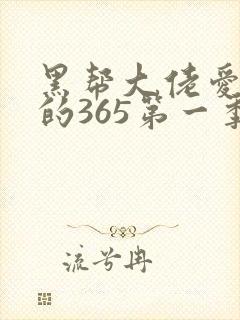 黑帮大佬爱
的365第一季
流兮冉